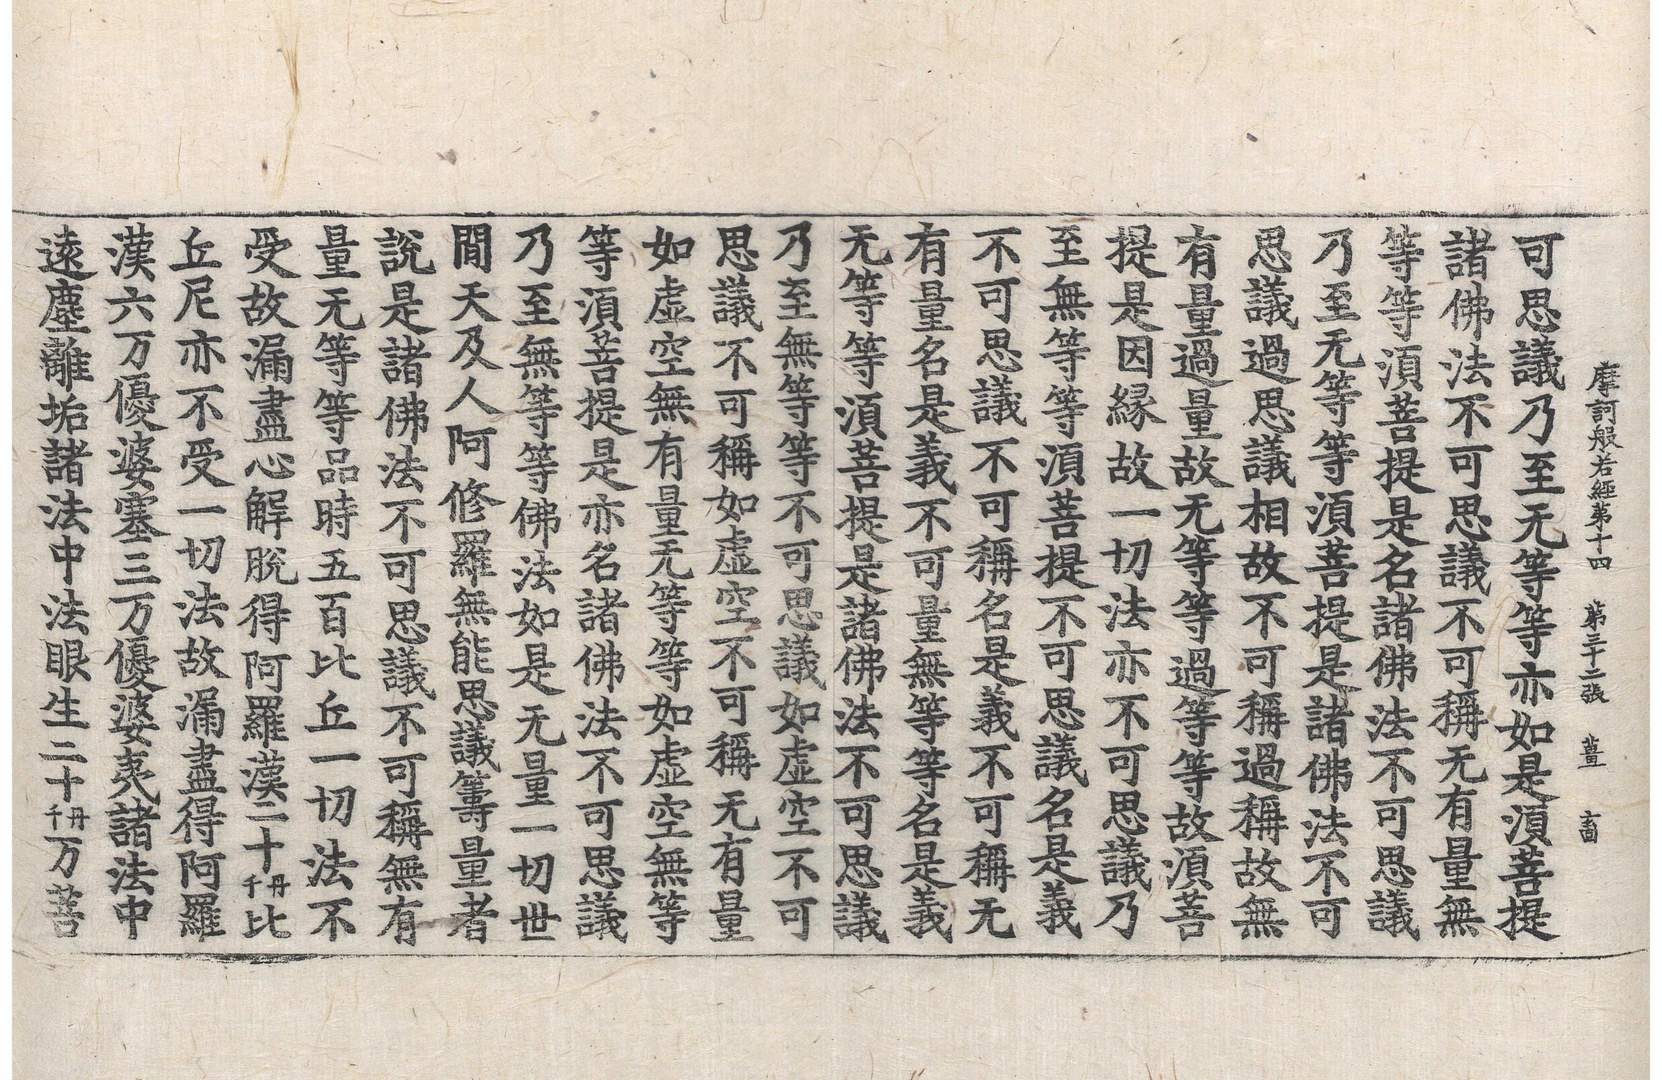 摩訶般若經第十四 第三十二張 薑
可思議乃至无等等亦如是湏菩提
諸佛法不可思議不可稱无有量無
等等湏菩提是名諸佛法不可思議
乃至无等等湏菩提是諸佛法不可
思議過思議相故不可稱過稱故無
有量過量故无等等過等等故湏菩
提是因緣故一切法亦不可思議乃
至無等等湏菩提不可思議名是義
不可思議不可稱名是義不可稱无
有量名是義不可量無等等名是義
无等等湏菩提是諸佛法不可思議
乃至無等等不可思議如虛空不可
思議不可稱如虛空不可稱无有量
如虛空無有量无等等如虛空無等
等湏菩提是亦名諸佛法不可思議
乃至無等等佛法如是无量一切世
間天及人阿修羅無能思議籌量者
說是諸佛法不可思議不可稱無有
量无等等品時五百比丘一切法不
受故漏盡心解脫得阿羅漢二十丹千比
丘尼亦不受一切法故漏盡得阿羅
漢六万優婆塞三万優婆夷諸法中
遠塵離垢諸法中法眼生二十丹千万菩